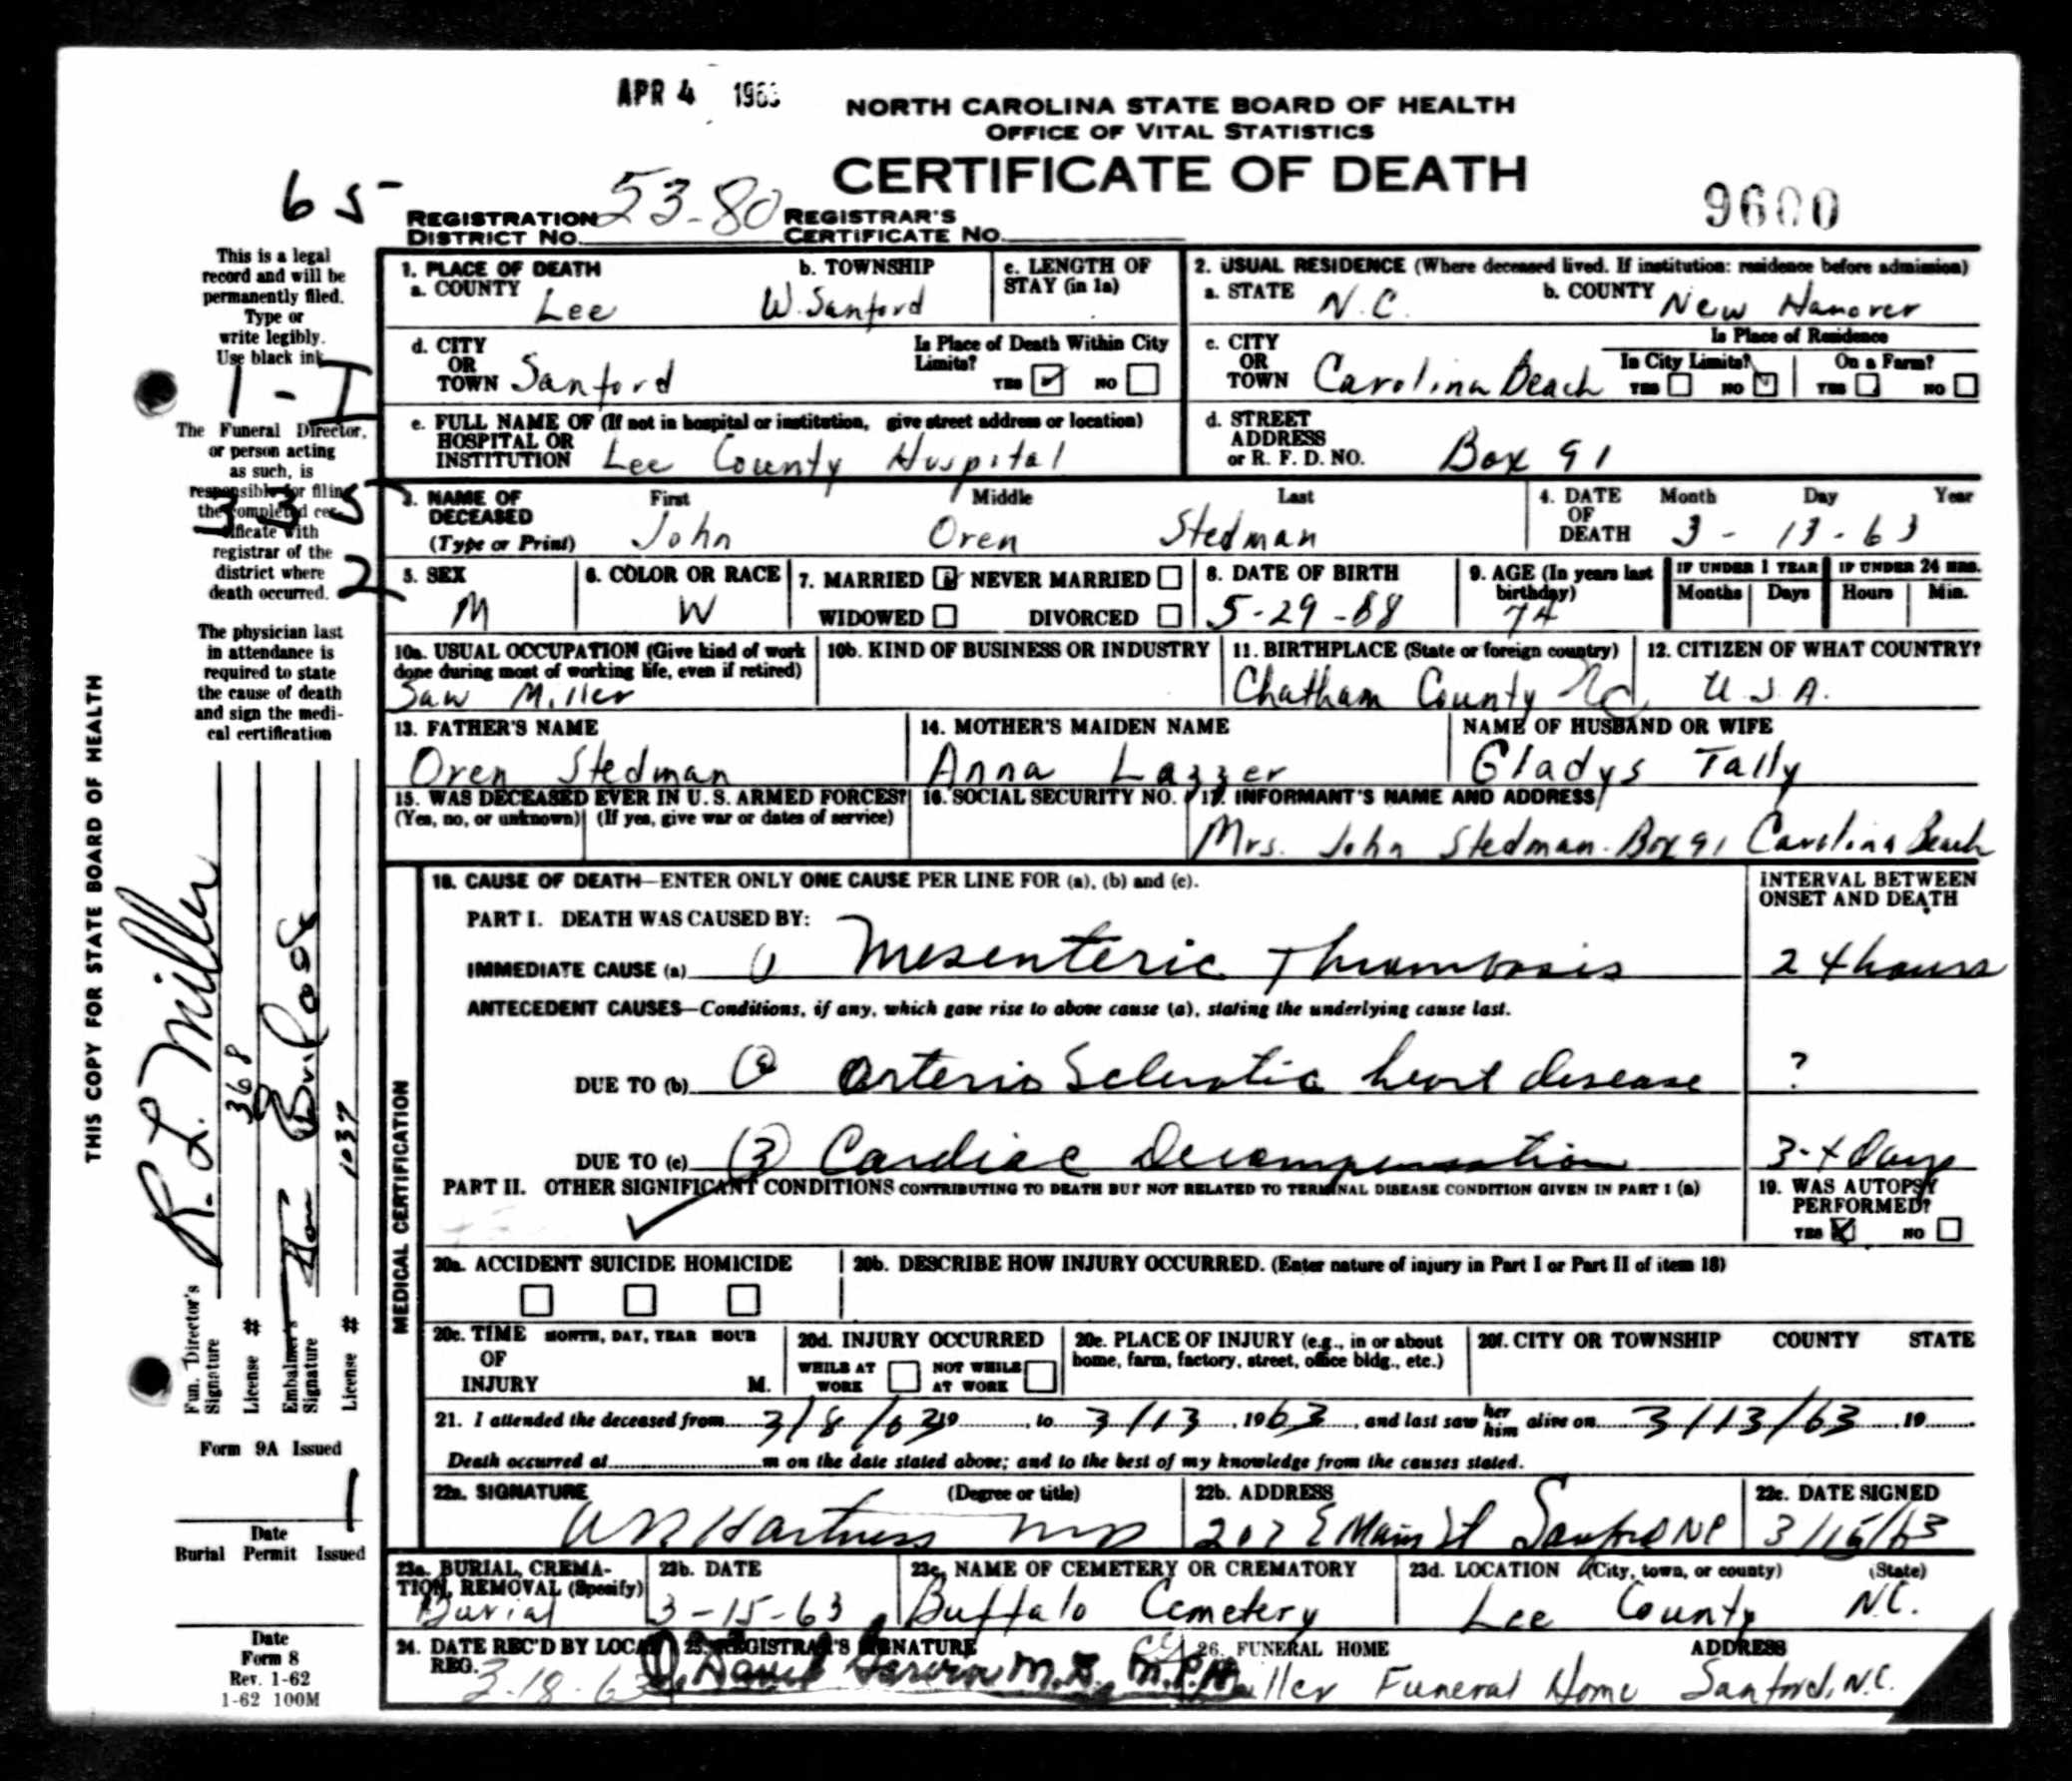 APR 4 1963
NORTH CAROLINA STATE BOARD OF HEALTH
OFFICE OF VITAL STATISTICS
CERTIFICATE OF DEATH
65-
9600
REGISTRATION DISTRICT No. 53-80 REGISTRAR'S CERTIFICATE No.
This is a legal
record and will be
permanently filed.
Type or
write legibly.
Use black ink
1 - I
The Funeral Director,
or person acting
as such, is
responsible for filing
the completed cer-
tificate with
registrar of the
district where
death occurred.
335
2
The physician last
in attendance is
required to state
the cause of death
and sign the medi-
cal certification
THIS COPY FOR STATE BOARD OF HEALTH
Fun. Director's Signature R. L. Miller
License # 368
Embalmer's Signature
License # 1037
Form 9A Issued
1
Date
Burial Permit Issued
Date
Form 8
Rev. 1-62
1-62 100M
1. PLACE OF DEATH
a. COUNTY Lee
b. TOWNSHIP W. Sanford
c. LENGTH OF STAY (in 1a)
2. USUAL RESIDENCE (Where deceased lived. If institution: residence before admission)
a. STATE N.C.
b. COUNTY New Hanover
d. CITY OR TOWN Sanford
Is Place of Death Within City Limits? YES NO
c. CITY OR TOWN Carolina Beach
Is Place of Residence
In City Limits? YES NO
On a Farm? YES NO
e. FULL NAME OF (If not in hospital or institution, give street address or location)
HOSPITAL OR
INSTITUTION Lee County Hospital
d. STREET ADDRESS or R. F. D. NO. Box 91
3. NAME OF DECEASED (Type or Print)
First Middle Last
John Oren Stedman
4. DATE OF DEATH Month Day Year
3 - 13 - 63
5. SEX M
6. COLOR OR RACE W
7. MARRIED NEVER MARRIED
WIDOWED DIVORCED
8. DATE OF BIRTH 5-29-88
9. AGE (In years last birthday) 74
IF UNDER 1 YEAR Months Days
IF UNDER 24 HRS. Hours Min.
10a. USUAL OCCUPATION (Give kind of work
done during most of working life, even if retired)
Saw Miller
10b. KIND OF BUSINESS OR INDUSTRY
11. BIRTHPLACE (State or foreign country)
Chatham County NC
12. CITIZEN OF WHAT COUNTRY?
U.S.A.
13. FATHER'S NAME
Oren Stedman
14. MOTHER'S MAIDEN NAME
Anna Lazzer
NAME OF HUSBAND OR WIFE
Gladys Tally
15. WAS DECEASED EVER IN U.S. ARMED FORCES?
(Yes, no, or unknown) (If yes, give war or dates of service)
16. SOCIAL SECURITY NO.
17. INFORMANT'S NAME AND ADDRESS
Mrs. John Stedman - Box 91 Carolina Beach
MEDICAL CERTIFICATION
18. CAUSE OF DEATH—ENTER ONLY ONE CAUSE PER LINE FOR (a), (b) and (c).
INTERVAL BETWEEN ONSET AND DEATH
PART I. DEATH WAS CAUSED BY:
IMMEDIATE CAUSE (a) (1) Mesenteric Thrombosis 24 hours
ANTECEDENT CAUSES—Conditions, if any, which gave rise to above cause (a), stating the underlying cause last.
DUE TO (b) (2) Arterio Sclerotic heart disease ?
DUE TO (c) (3) Cardiac Decompensation 3-4 days
PART II. OTHER SIGNIFICANT CONDITIONS CONTRIBUTING TO DEATH BUT NOT RELATED TO TERMINAL DISEASE CONDITION GIVEN IN PART I (a)
19. WAS AUTOPSY PERFORMED?
YES NO
20a. ACCIDENT SUICIDE HOMICIDE
20b. DESCRIBE HOW INJURY OCCURRED. (Enter nature of injury in Part I or Part II of item 18)
20c. TIME OF INJURY MONTH, DAY, YEAR HOUR M.
20d. INJURY OCCURRED
WHILE AT WORK NOT WHILE AT WORK
20e. PLACE OF INJURY (e.g., in or about
home, farm, factory, street, office bldg., etc.)
20f. CITY OR TOWNSHIP COUNTY STATE
21. I attended the deceased from 3/8/63 19 , to 3/13 , 1963 , and last saw her him alive on 3/13/63 19
Death occurred at m on the date stated above; and to the best of my knowledge from the causes stated.
22a. SIGNATURE (Degree or title)
Hartness MD
22b. ADDRESS
207 E Main St Sanford NC
22c. DATE SIGNED
3/15/63
23a. BURIAL, CREMA-
TION, REMOVAL (Specify)
Burial
23b. DATE
3-15-63
23c. NAME OF CEMETERY OR CREMATORY
Buffalo Cemetery
23d. LOCATION (City, town, or county) (State)
Lee County N.C.
24. DATE REC'D BY LOCAL REG.
3-18-63
25. REGISTRAR'S SIGNATURE
M.D. M.P.H.
26. FUNERAL HOME ADDRESS
Miller Funeral Home Sanford, N.C.